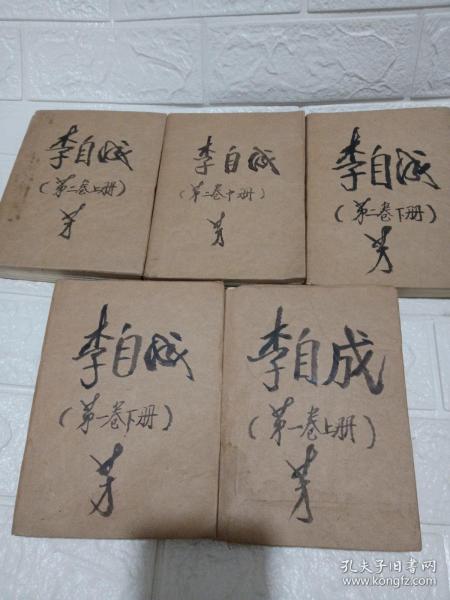 李自成
(第二卷上册)
李自成
(第二卷中册)
李自成
(第二卷下册)
李自成
(第一卷下册)
李自成
(第一卷上册)
孔夫子旧书网
www.kongfz.com